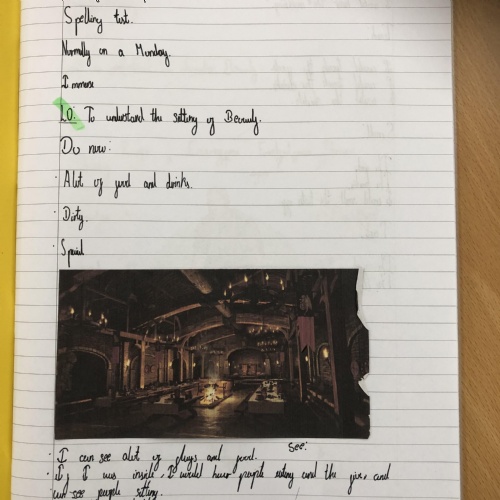 Spelling test.
Normally on a Monday.
Immerse
LO: To understand the setting of Beowulf.
Do now:
· Alot of food and drinks.
· Dirty.
·
See:
· I can see alot of and food.
· If, I was inside, I would hear people eating and the fire, and
can see people sitting.